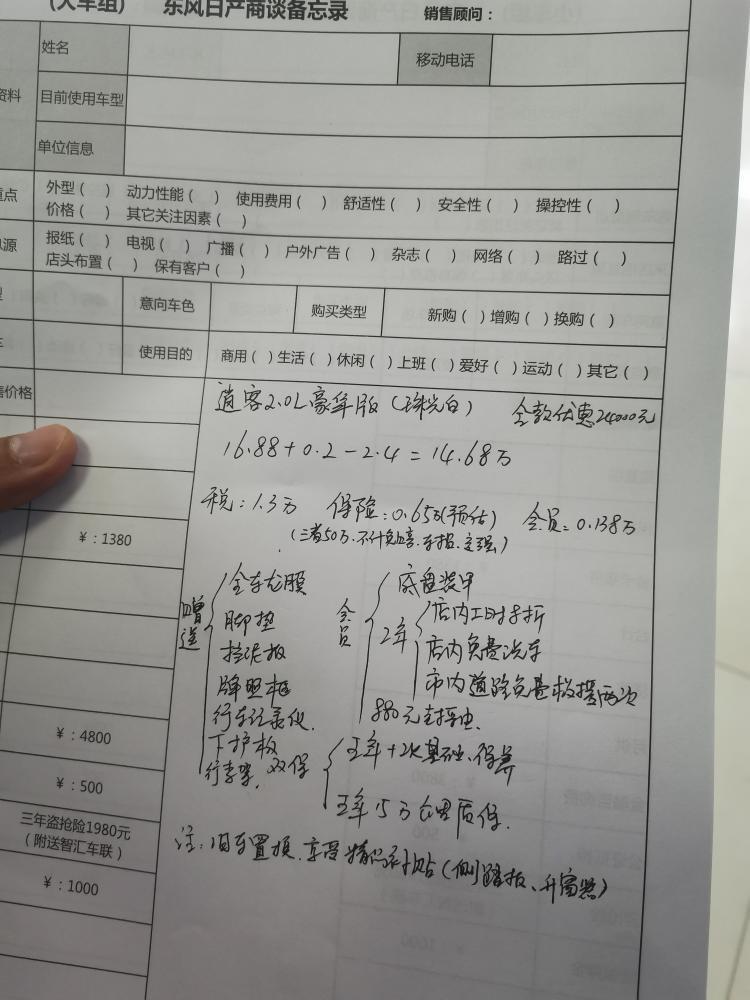 (大车组) 东风日产商谈备忘录 销售顾问：
姓名 移动电话
资料 目前使用车型
单位信息
重点 外型（ ） 动力性能（ ） 使用费用（ ） 舒适性（ ） 安全性（ ） 操控性（ ）
价格（ ） 其它关注因素（ ）
源 报纸（ ） 电视（ ） 广播（ ） 户外广告（ ） 杂志（ ） 网络（ ） 路过（ ）
店头布置（ ） 保有客户（ ）
型 意向车色 购买类型 新购（ ）增购（ ）换购（ ）
车 使用目的 商用（ ）生活（ ）休闲（ ）上班（ ）爱好（ ）运动（ ）其它（ ）
售价格
逍客2.0L豪华版（珠光白） 全款优惠24000元
16.88+0.2-2.4=14.68万
税：1.3万 保险：0.65万(预估) 会员：0.138万
（三者50万.不计免赔.车损.交强）
¥：1380
赠送
全车龙膜
脚垫
挡泥板
牌照框
行车记录仪.
下护板
行李架. 双保
会员
底盘装甲
2年
店内工时8折
店内免费洗车
市内道路免费救援两次
880元封釉.
五年+2次基础.保养
五年15万公里质保.
注：旧车置换.享受精品补贴（侧踏板、升窗器）
¥：4800
¥：500
三年盗抢险1980元
（附送智汇车联）
¥：1000